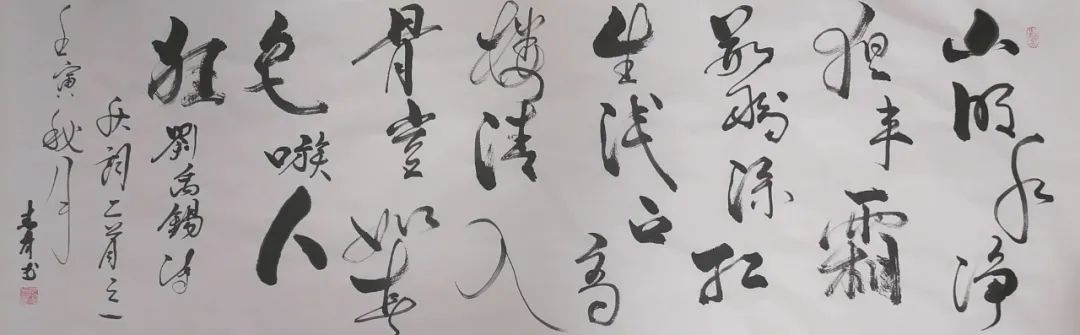 山明水净
夜来霜
数树深红
出浅上高
楼清入
骨岂如春
色嗾人
狂
劉禹錫诗
秋词二首之一
壬寅秋月